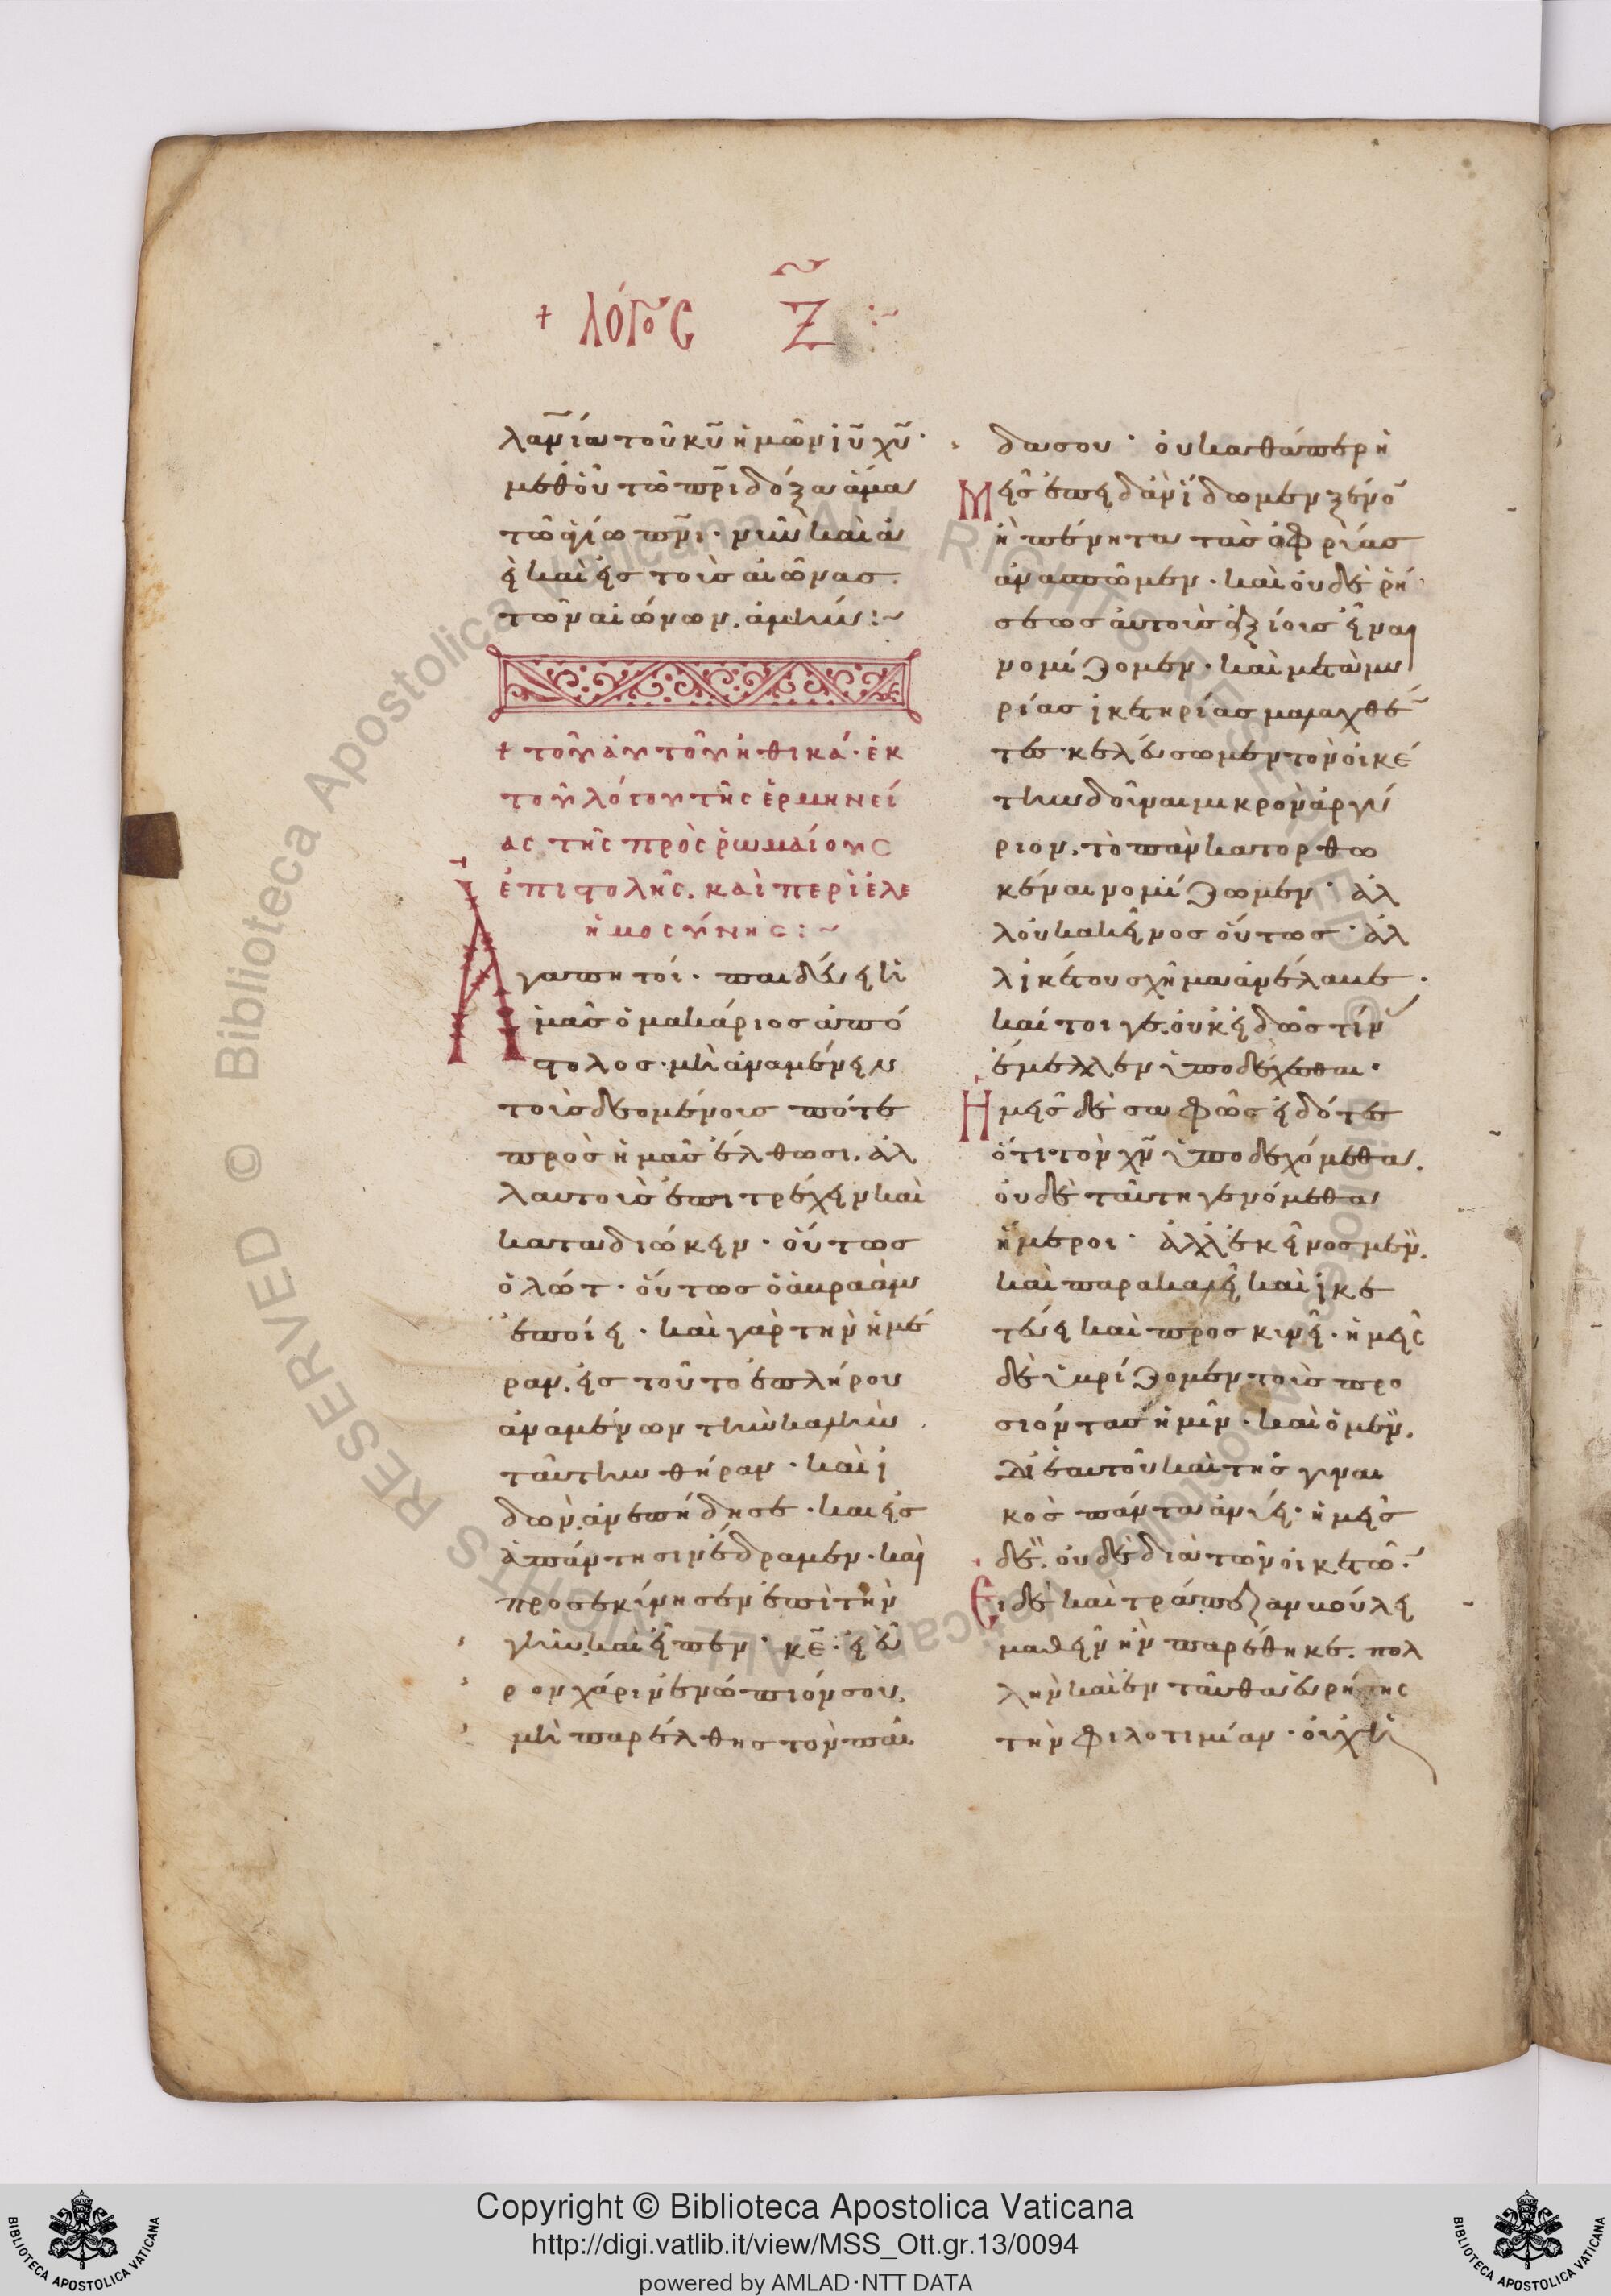 + λόγος ζ̃ :~
λα(ν)ίαν τοῦ κ̅υ̅ ἡμῶν ἰ̅υ̅ χ̅υ̅·
μεθοῦ τῶ π̅ρ̅ι δόξα ἅμα
τῶ ἁγίω π̅ν̅ι· νῦν καὶ ἀ
ὲ καὶ εἰς τοὺς αἰῶνας
τῶν αἰώνων. ἀμήν :~
+ τοῦ ἀυτοῦ ἠθικά· ἐκ
τοῦ λόγου τῆς ἑρμηνεί
ας τῆς πρὸς ῥωμαίους
ἐπιστολῆς. καὶ περὶ ἐλε
ημοσύνης :~
Αγαπητοί· παιδεύει
ἡμᾶς ὁ μακάριος ἀπό
στολος· μὴ ἀναμένειν
τοὺς δεομένους πότε
πρὸς ἡμᾶς ἔλθωσι. ἀλ
λαυτοῖς ἐπιτρέχειν καὶ
καταδιώκειν· οὕτως
ὁ λώτ· οὕτως ὁ ἀβραὰμ
ἐποίει· καὶ γὰρ τὴν ἡμέ
ραν, εἰς τοῦτο ἐπλήρου
ἀναμένων τὴν καλὴν
ταύτην θήραν· καὶ ἰ
δὼν, ἀνεπήδησε· καὶ εἰς
ἀπάντησιν ἔδραμεν· καὶ
προσεκύνησεν ἐπὶ τὴν
γῆν, καὶ εἶπεν· κ̅ε̅· εἰ εὗ
ρον χάριν ἐνώπιόν σου,
μὴ παρέλθης τὸν παῖ
δα σου· ὀυ καθάπερ ἡ
μεῖς ἐπειδὰν ἴδωμεν ξένο(ν)
ἢ πένητα τὰς ὀφρύας
ἀνασπῶμεν· καὶ ὀυδὲ ῥή
σεως ἀυτοὺς ἀξίους εἶναι
νομίζομεν· καὶ μετὰ μυ
ρίας ἱκετηρίας μαλαχθέ(ν)
τες· κελεύσωμεν τὸν οἰκέ
την δοῦναι μικρὸν ἀργύ
ριον, τὸ πᾶν κατορθω
κέναι νομίζωμεν· ἀλ
λ' ὀυκ ἐκεῖνος οὕτως· ἀλ
λ' ἱκέτου σχῆμα ἀνέλαβε·
καί τοι γε, ὀυκ εἰδὼς τίν(α)
ἔμελλεν ὑποδέχεσθαι·
Ημεῖς δὲ σαφῶς εἰδότες
ὅτι τὸν χ̅ν̅ ὑποδεχόμεθα,
ὀυδὲ ταύτη γενόμεθα
ἥμεροι· ἀλλ' ἐκεῖνος μὲν,
καὶ παρακαλεῖ καὶ ἱκε
τεύει καὶ προσκυνεῖ· ἡμεῖς
δὲ ὑβρίζομεν τοὺς προ
σιόντας ἡμῖν· καὶ ὁ μὲν,
δι' ἑαυτοῦ καὶ τῆς γυναι
κὸς πάντα ἀνύει· ἡμεῖς
δὲ, ὀυδὲ διὰ τῶν οἰκετῶ(ν)·
Ει δὲ καὶ τράπεζαν βούλει
μαθεῖν ἣν παρέθηκε, πολ
λὴν καὶ ἐνταῦθα εὑρήσης
τὴν φιλοτιμίαν· ὀυχὶ
Copyright © Biblioteca Apostolica Vaticana
http://digi.vatlib.it/view/MSS_Ott.gr.13/0094
powered by AMLAD·NTT DATA
BIBLIOTECA APOSTOLICA VATICANA
BIBLIOTECA APOSTOLICA VATICANA